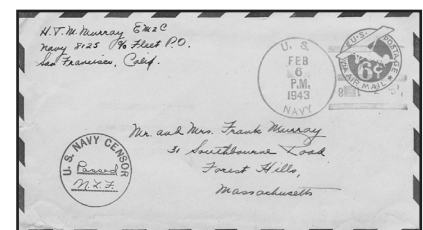 H.T.M. Murray EM2C
Navy 8125 c/o Fleet P.O.
San Francisco, Calif.
U. S.
FEB
6
P.M.
1943
NAVY
U.S. POSTAGE
VIA AIR MAIL
6¢
Mr. and Mrs. Frank Murray
31 Southbourne Road
Forest Hills,
Massachusetts
U. S. NAVY CENSOR
Passed